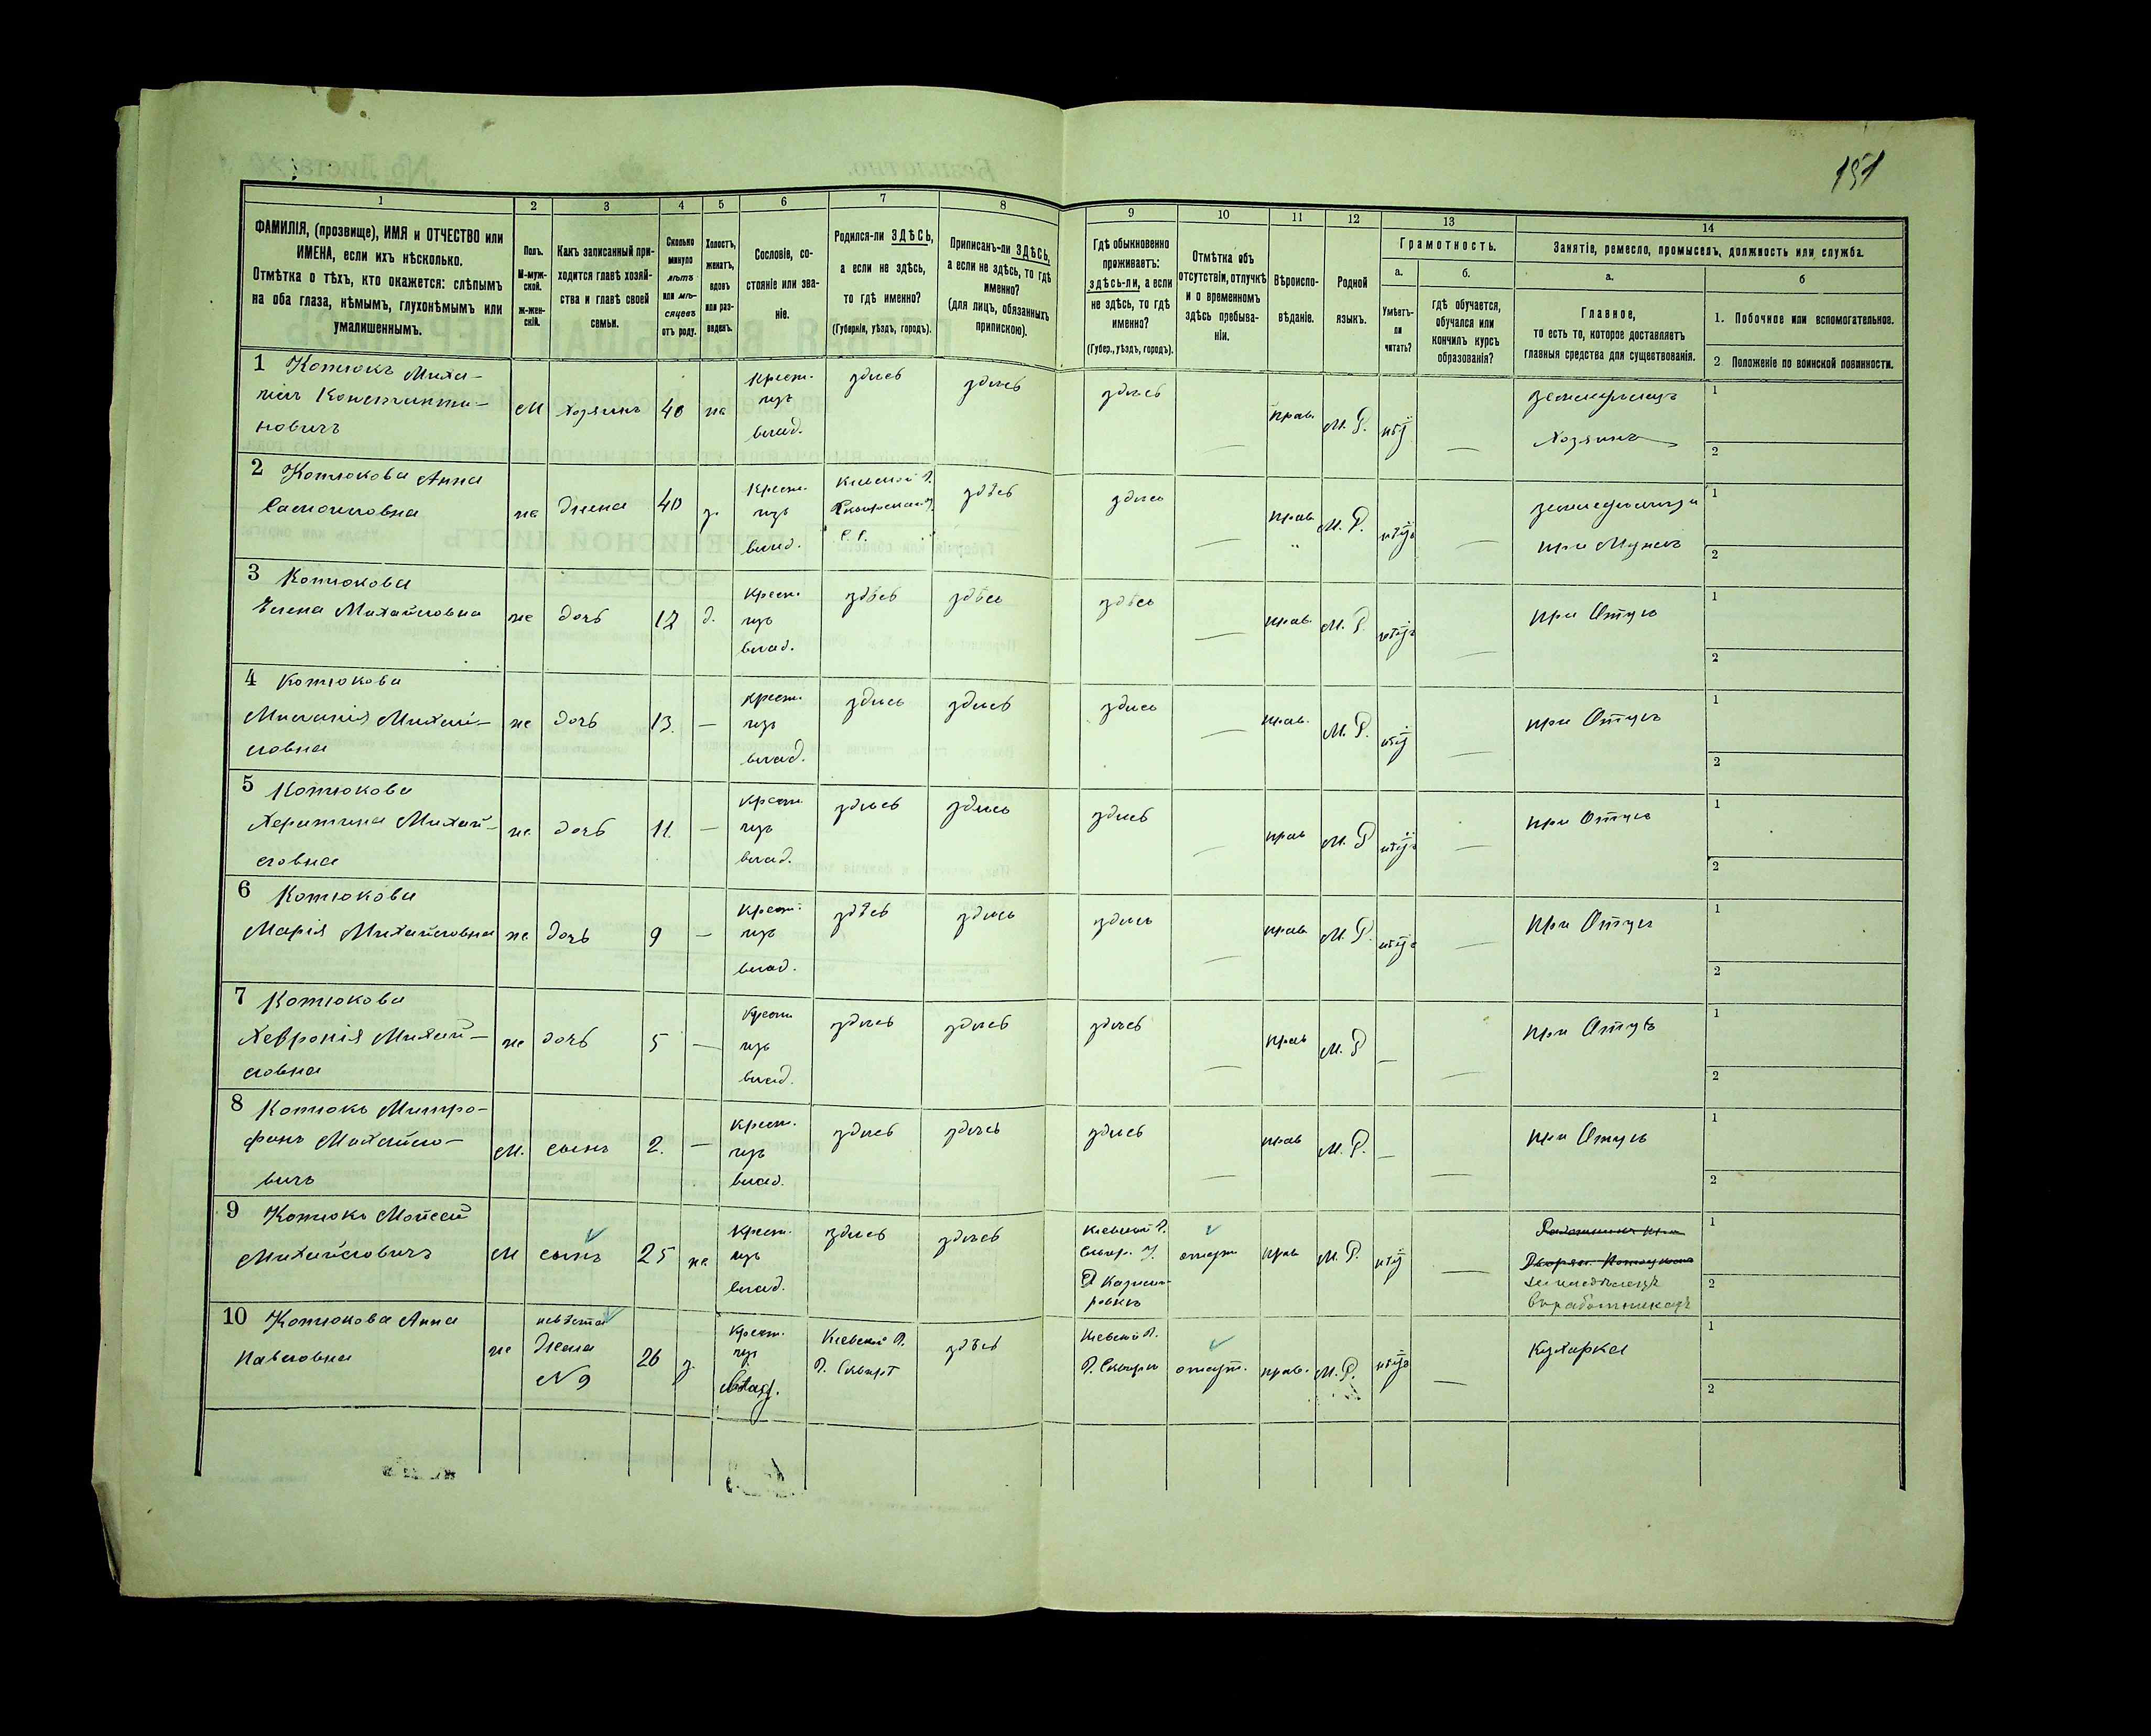 151
1
2
3
4
5
6
7
8
9
10
11
12
13
14
ФАМИЛІЯ, (прозвище), ИМЯ и ОТЧЕСТВО или
ИМЕНА, если ихъ нѣсколько.
Отмѣтка о тѣхъ, кто окажется: слѣпымъ
на оба глаза, нѣмымъ, глухонѣмымъ или
умалишеннымъ.
Полъ.
М-муж-
ской.
Ж-жен-
скій.
Какъ записанный при-
ходится главѣ хозяй-
ства и главѣ своей
семьи.
Сколько
минуло
лѣтъ
или мѣ-
сяцевъ
отъ роду.
Холостъ,
женатъ,
вдовъ
или раз-
веденъ.
Сословіе, со-
стояніе или зва-
ніе.
Родился-ли ЗДѢСЬ,
а если не здѣсь,
то гдѣ именно?
(Губернія, уѣздъ, городъ).
Приписанъ-ли ЗДѢСЬ,
а если не здѣсь, то гдѣ
именно?
(для лицъ, обязанныхъ
припискою).
Гдѣ обыкновенно
проживаетъ:
здѣсь-ли, а если
не здѣсь, то гдѣ
именно?
(Губер., уѣздъ, городъ).
Отмѣтка объ
отсутствіи, отлучкѣ
и о временномъ
здѣсь пребыва-
ніи.
Вѣроиспо-
вѣданіе.
Родной
языкъ.
Грамотность.
а.
Умѣетъ-
ли
читать?
б.
гдѣ обучается,
обучался или
кончилъ курсъ
образованія?
Занятіе, ремесло, промыселъ, должность или служба.
а.
Главное,
то есть то, которое доставляетъ
главныя средства для существованія.
б
1. Побочное или вспомогательное.
2. Положеніе по воинской повинности.
1 Котюкъ Миха-
илъ Константи-
новичъ
М хозяинъ 40 же
Крест.
изъ
влад.
здѣсь здѣсь здѣсь — прав. М. Р. нѣтъ —
земледѣлецъ
Хозяинъ
1
2
2 Котюкова Анна
Самойловна
же жена 40 з.
Крест.
изъ
влад.
Кіевской Г.
Сквирскаго У.
здѣсь здѣсь — прав. М. Р. нѣтъ —
при Мужѣ
1
2
3 Котюкова
Елена Михайловна
же дочь 17 д.
Крест.
изъ
влад.
здѣсь здѣсь здѣсь — прав. М. Р. нѣтъ —
при Отцѣ
1
2
4 Котюкова
Миланія Михай-
ловна
же дочь 13. —
Крест.
изъ
влад.
здѣсь здѣсь здѣсь — прав. М. Р. нѣтъ —
при Отцѣ
1
2
5 Котюкова
Харитина Михай-
ловна
же дочь 11. —
Крест.
изъ
влад.
здѣсь здѣсь здѣсь — прав М. Р нѣтъ —
при Отцѣ
1
2
6 Котюкова
Марія Михайловна
же дочь 9 —
Крест.
изъ
влад.
здѣсь здѣсь здѣсь — прав. М. Р. нѣтъ —
при Отцѣ
1
2
7 Котюкова
Хевронія Михай-
ловна
же дочь 5 —
Крест.
изъ
влад.
здѣсь здѣсь здѣсь — прав М. Р — —
при Отцѣ
1
2
8 Котюкъ Митро-
фанъ Михайло-
вичъ
М. сынъ 2. —
Крест.
изъ
влад.
здѣсь здѣсь здѣсь — прав М. Р. — —
при Отцѣ
1
2
9 Котюкъ Мойсей
Михайловичъ
М сынъ 25 же
Крест.
изъ
влад.
здѣсь здѣсь
Кіевской Г.
Сквир. У.
Казими-
ровкѣ
отлуч. прав М. Р. нѣтъ —
земледѣлецъ
въ работникахъ
1
2
10 Котюкова Анна
Павловна
же
невѣста
Жена
N 9
26 з.
Крест.
изъ
влад.
Кіевской Г.
Г. Сквирѣ
здѣсь
Кіевской Г.
Г. Сквирѣ
отлуч. прав. М. Р. нѣтъ —
Кухарка
1
2